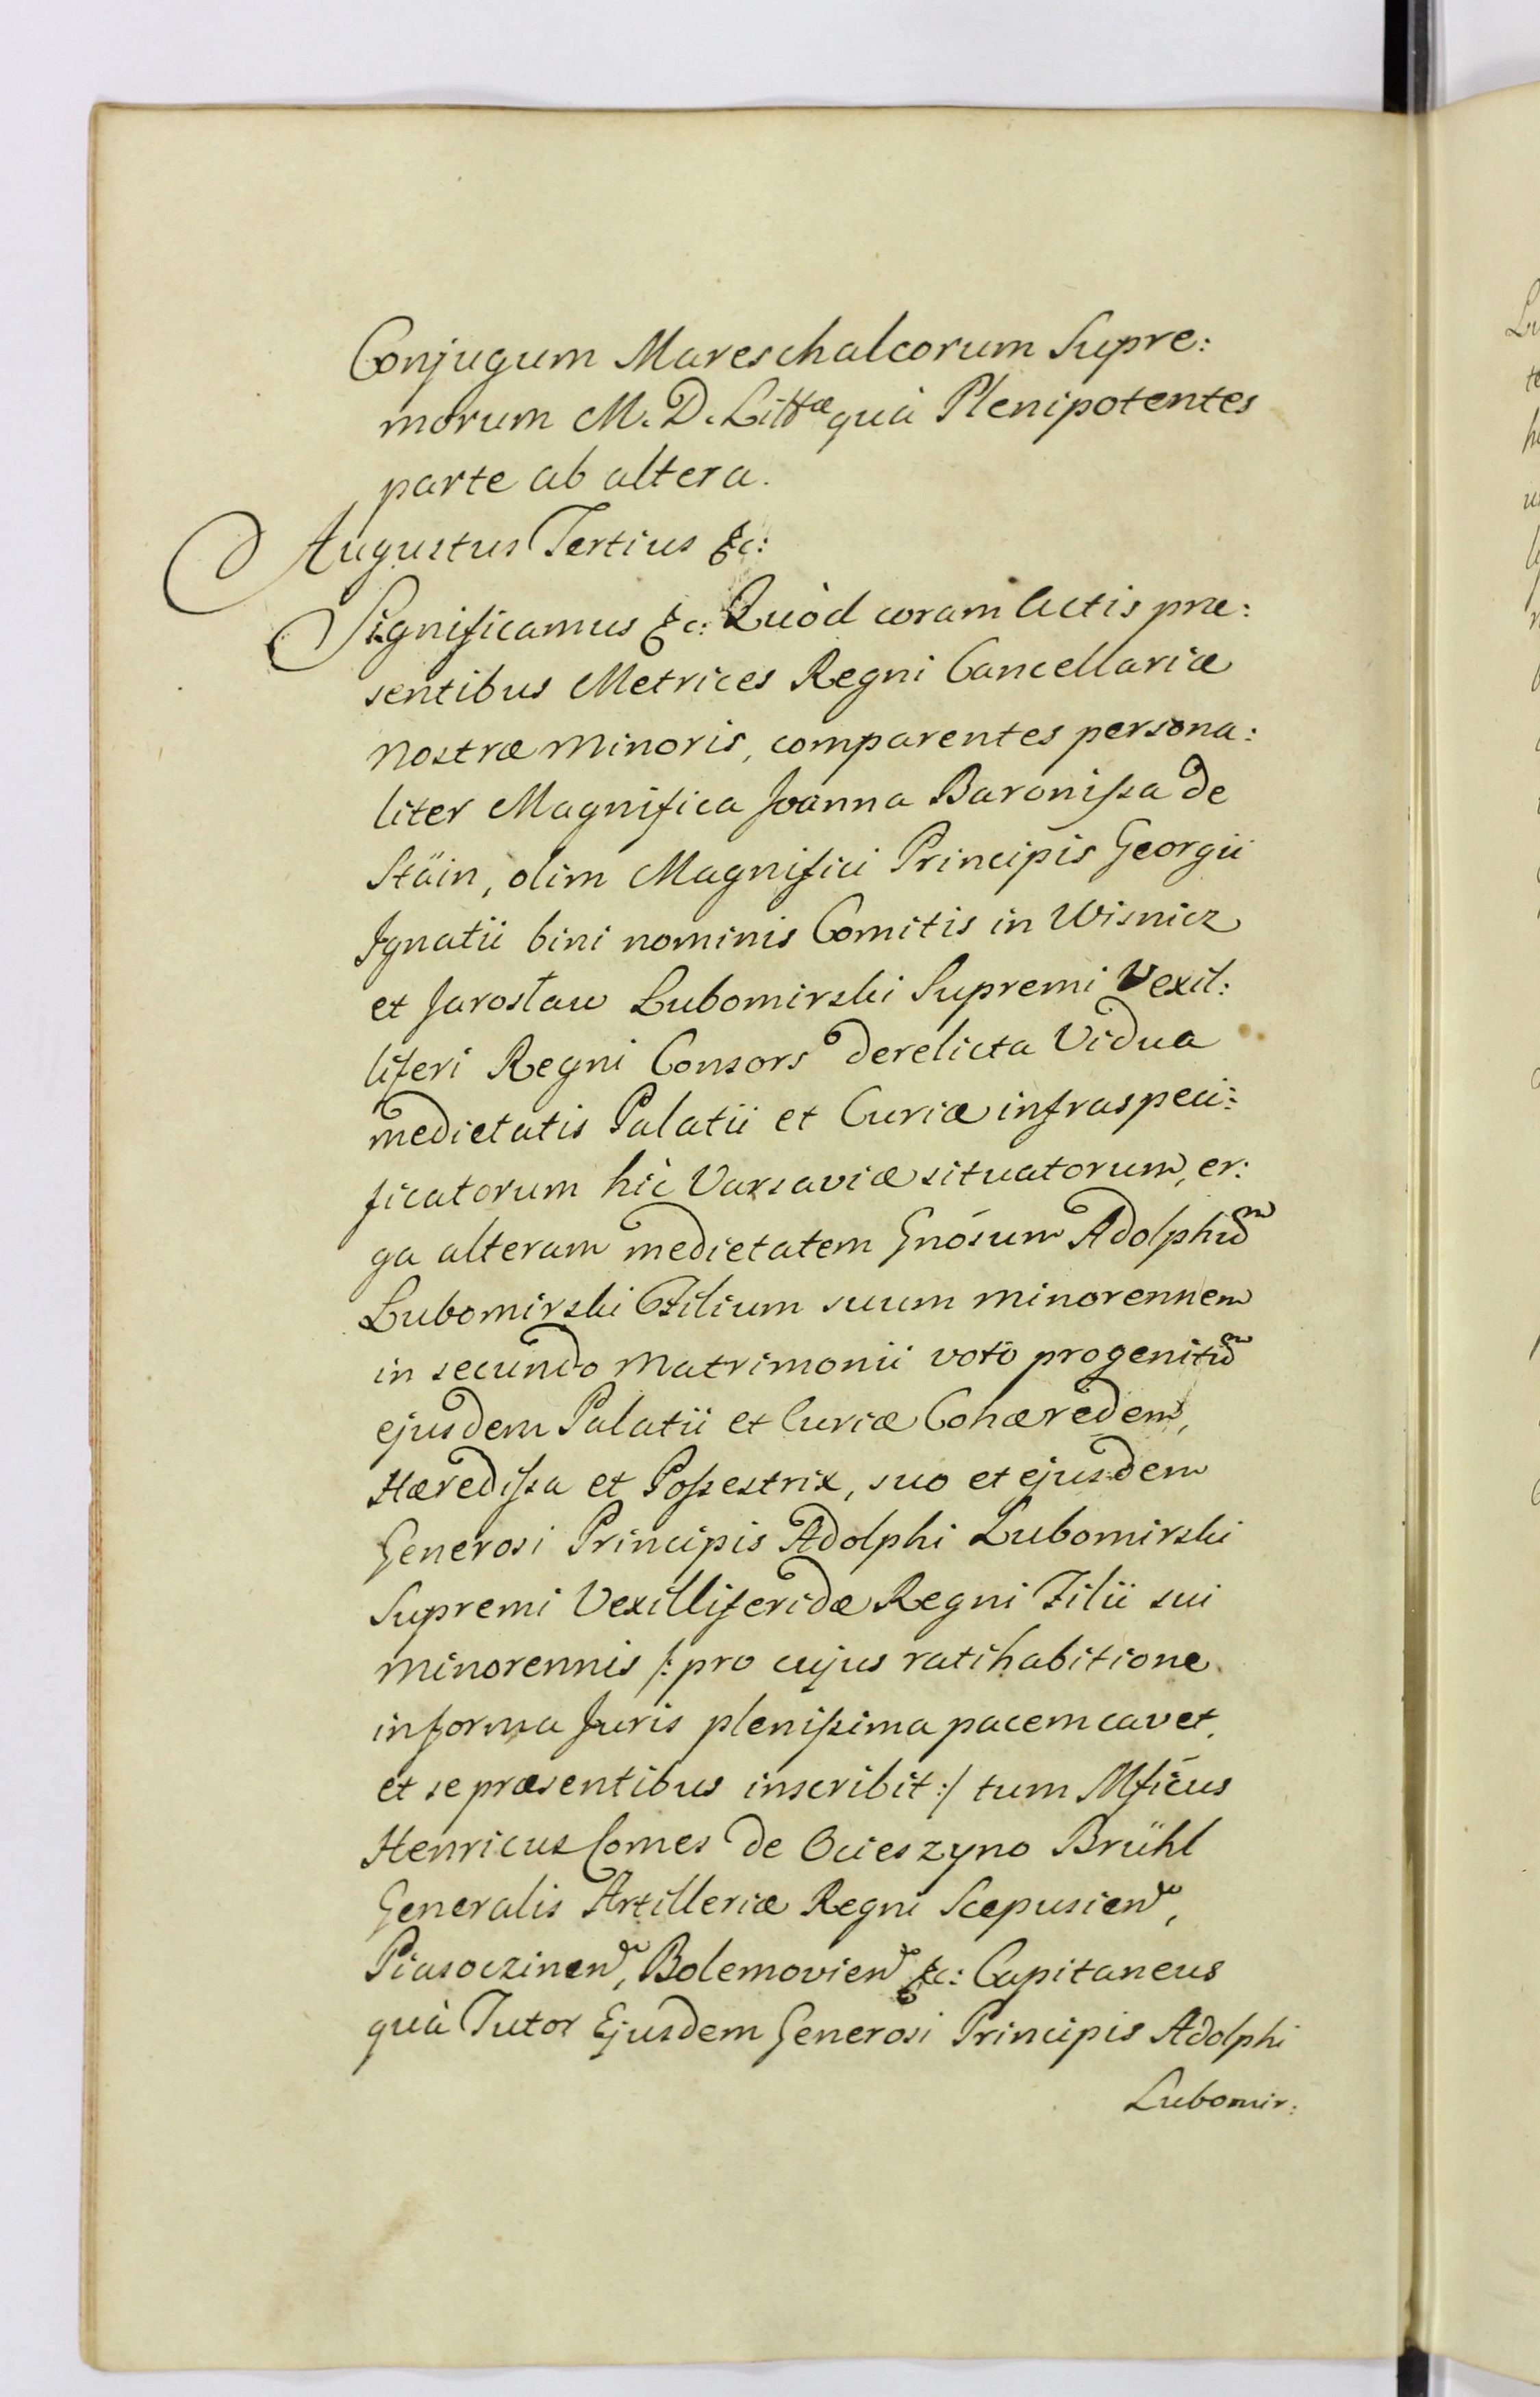 Conjugum Mareschalcorum Supre:
morum M. D. Littæ quà Plenipotentes
parte ab altera.
Augustus Tertius &c:
Significamus &c: Quòd coram Actis præ:
sentibus Metrices Regni Cancellariæ
Nostræ Minoris, comparentes persona:
liter Magnifica Joanna Baronissa de
Stäin, olim Magnifici Principis Georgii
Ignatii bini nominis Comitis in Wisnicz
et Jarosław Lubomirski Supremi Vexil:
liferi Regni Consors derelicta Vidua
medietatis Palatii et Curiæ infraspeci:
ficatorum hìc Varsaviæ situatorum, er:
ga alteram medietatem Gnósum Adolphũ
Lubomirski Filium suum minorennem
in secundo Matrimonii voto progenitũ
ejusdem Palatii et Curiæ Cohæredem,
Hæredissa et Possestrix, suo et ejusdem
Generosi Principis Adolphi Lubomirski
Supremi Vexilliferidæ Regni Filii sui
Minorennis /: pro cujus ratihabitione
in forma Juris plenissima pacem cavet,
et se præsentibus inscribit :/ tum Mficus
Henricus Comes de Ocieszyno Brühl
Generalis Artilleriæ Regni Scepusien,
Piasoczinen, Bolemovien &c: Capitaneus
quà Tutor Ejusdem Generosi Principis Adolphi
Lubomir: